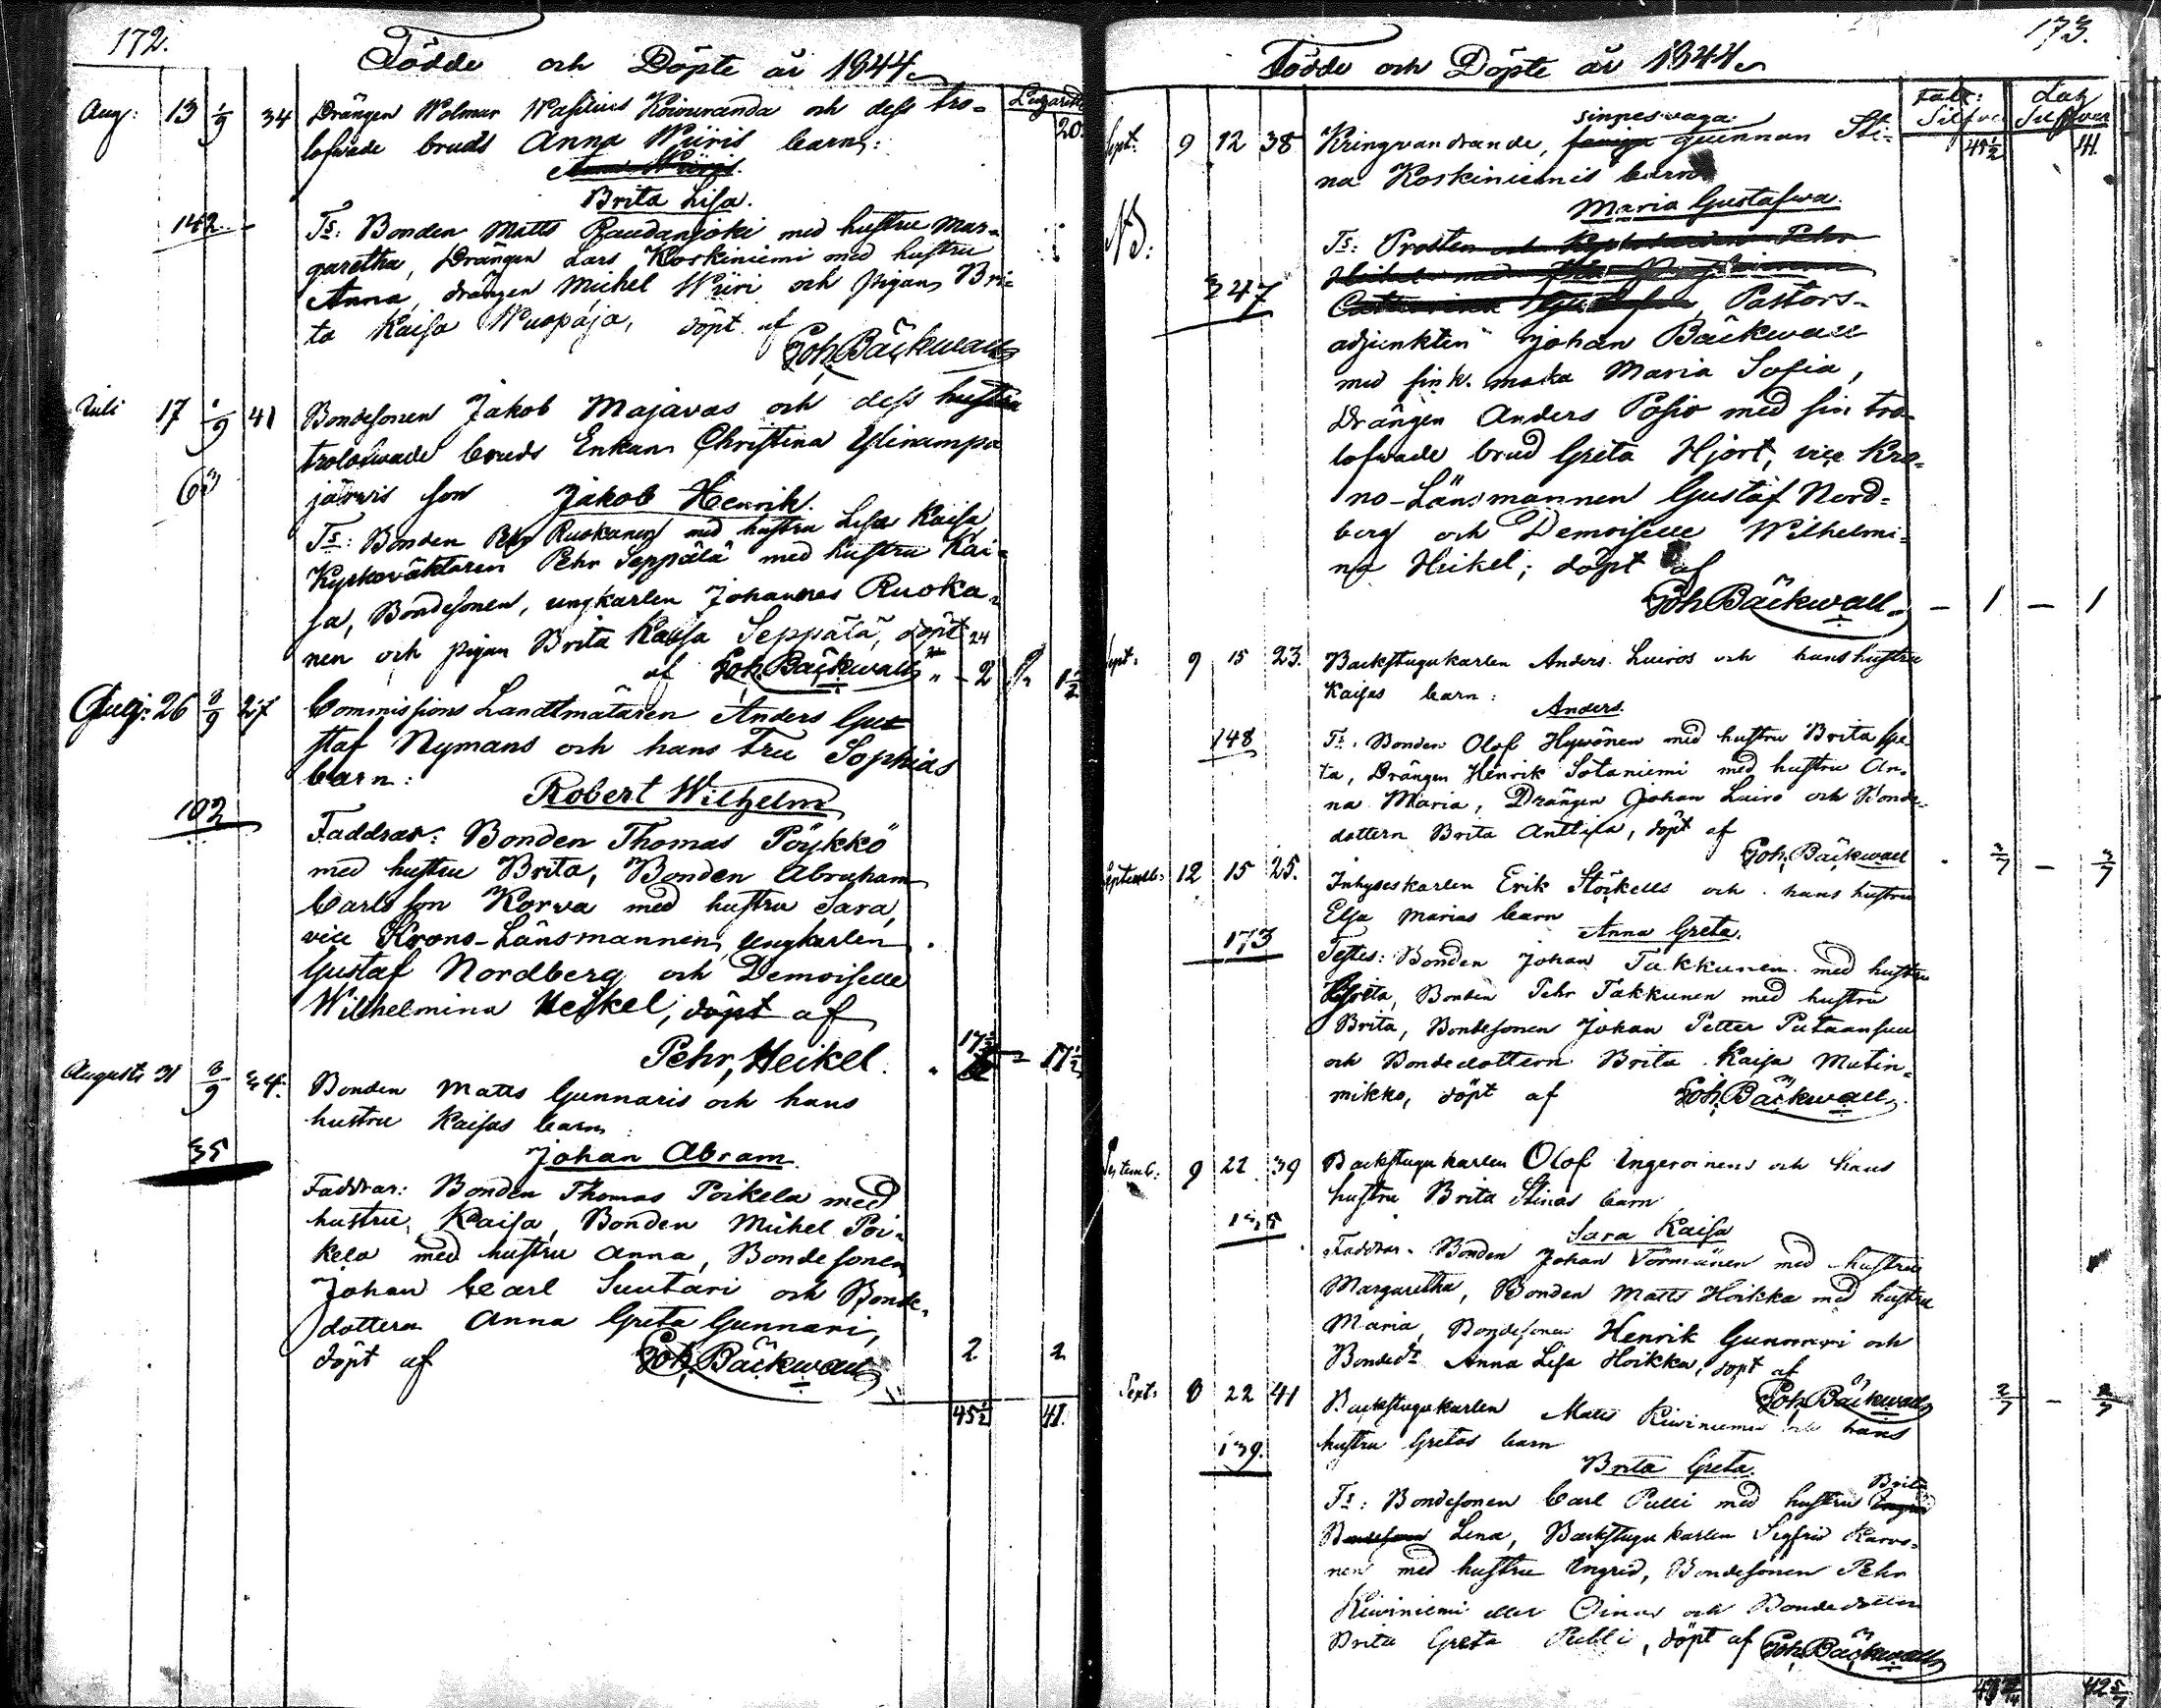 172.
Födde och Döpte år 1844.
Lazarett
20.
Aug: 13 1/9 34 Drängen Wolmar Wasilius Koivuranda och dess tro-
lofwade bruds Anna Wiiris barn:
Anna Wiiris.
Brita Lisa.
142. Ts: Bonden Matts Raudanjoki med hustru Mar-
garetha, Drängen Lars Koskiniemi med hustru
Anna, drängen Michel Wiiri och pigan Bri-
ta Kaisa Wuopaja, döpt af
Joh. Bäckwall
Juli 17 1/9 41 Bondesonen Jakob Majavas och dess hustru
trolofwade bruds Enkan Christina Ylinampa
63 järwis son Jakob Henrik.
Ts: Bonden Pehr Ruokanen med hustru Lisa Kaisa
Kyrkoväktaren Pehr Seppälä med hustru Kai-
sa, Bondesonen, ungkarlen Johannes Ruoka-
nen och pigan Brita Kaisa Seppälä, döpt 24
af Joh. Bäckwall 2 1 1/2
Aug: 26 8/9 27 Commissions Landtmätaren Anders Gus
staf Nymans och hans Fru Sophias
barn:
Robert Wilhelm
102 Faddrar: Bonden Thomas Pöykkö
med hustru Brita, Bonden Abraham
Carlsson Korva med hustru Sara,
vice Krono-Länsmannen, Ungkarlen
Gustaf Nordberg och Demoiselle
Wilhelmina Heikel, döpt af
Pehr Heikel. 17 1/2 17 1/2
Augusti 31 8/9 34. Bonden Matts Gunnaris och hans
hustru Kaisas barn:
35 Johan Abram
Faddrar: Bonden Thomas Poikela med
hustru Kaisa, Bonden Michel Poi-
kela med hustru Anna, Bondesonen
Johan Carl Suutari och Bonde-
dottern Anna Greta Gunnari,
döpt af Joh. Bäckwall 2 2
45 1/2 41.
173.
Födde och Döpte år 1844.
Fatt: Silfver Laz Silfver
45 1/2 41.
Sept: 9 12 38 Kringvandrande, sinnessvaga qvinnan Sti-
na Koskiniemis barn
Maria Gustafwa.
NB.
Ts: Prosten och Kyrkoherden Pehr
Heikel med
247 Pastors-
adjunkten Johan Bäckwall
med sin k. maka Maria Sofia,
Drängen Anders Posio med sin tro-
lofwade brud Greta Hjort, vice Kro-
no-Länsmannen Gustaf Nord-
berg och Demoiselle Wilhelmi-
na Heikel; döpt af
Joh. Bäckwall — 1 — 1
Sept: 9 15 23. Backstugukarlen Anders Luiros och hans hustru
Kaisas barn:
Anders.
148 Ts. Bonden Olof Hyvönen med hustru Brita Gre
ta, Drängen Henrik Sotaniemi med hustru An-
na Maria, Drängen Johan Luiro och Bonde-
dottern Brita Anttila, döpt af
Joh. Bäckwall 2/7 — 2/7
Septemb: 12 15 25. Inhyseskarlen Erik Stöckells och hans hustru
Elsa Marias barn
Anna Greta.
173 Testes: Bonden Johan Takkunen med hustru
Greta, Bonden Pehr Takkunen med hustru
Brita, Bondesonen Johan Petter Putaansuu
och Bondedottern Brita Kaisa Mutin-
mikko, döpt af Joh. Bäckwall
Septemb: 9 22 39 Backstugukarlen Olof Ingeroinens och hans
hustru Brita Stinas barn
135 Sara Kaisa
Faddrar. Bonden Johan Törmänen med hustru
Margaretha, Bonden Matts Hoikka med hustru
Maria, Bondesonen Henrik Gunnari och
Bondedr Anna Lisa Hoikka, döpt af
Joh. Bäckwall 2/7 — 2/7
Sept: 8 22 41 Backstugukarlen Matts Kiviniemis och hans
hustru Gretas barn
139. Brita Greta.
Ts: Bondesonen Carl Pulli med hustru Ingrid Brita
Bondesonen Lena, Backstugukarlen Sigfrid Karvo-
nen med hustru Ingrid, Bondesonen Pehr
Kiviniemi eller Oinas och Bondedottern
Brita Greta Pulli, döpt af Joh. Bäckwall
42 5/7